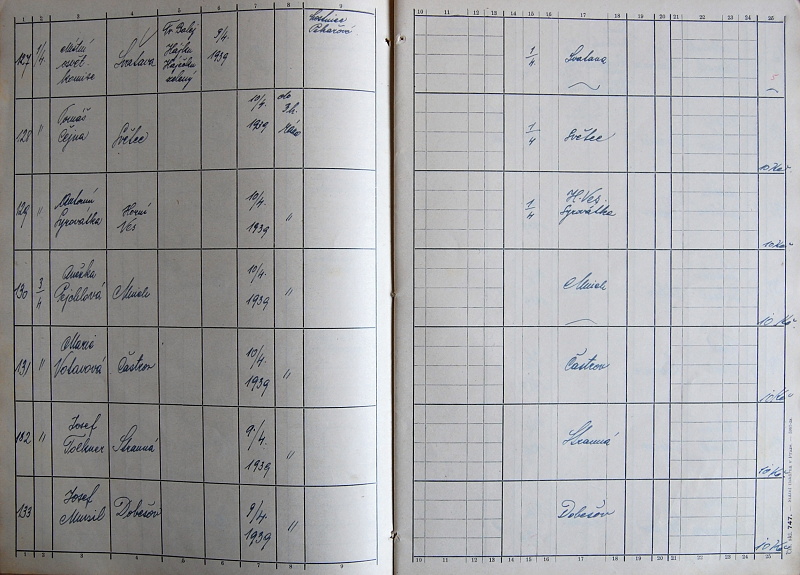 1 2 3 4 5 6 7 8 9
127 1/4 Místní Svatava 9/4 1939
128 " Tomáš Cejna Světce 10/4. 1939 do 3h.
129 " Antonín Syrovátka Horní Ves 10/4. 1939 "
130 3/4 Anežka Mnich 10/4. 1939 "
131 " Marie Votavová Častrov 10/4. 1939 "
132 " Josef Stranná 9/4. 1939 "
133 Josef Musil Dobešov 9/4 1939 "
1 2 3 4 5 6 7 8 9
10 11 12 13 14 15 16 17 18 19 20 21 22 23 24 25
1/4 Svatava 5
1/4 Světce 10 Kč
1/4 H. Ves. Syrovátka 10 Kč
Mnich 10 Kč
Častrov 10 Kč
Stranná 10 Kč
Dobešov 10 Kč
10 11 12 13 14 15 16 17 18 19 20 21 22 23 24 25
747.